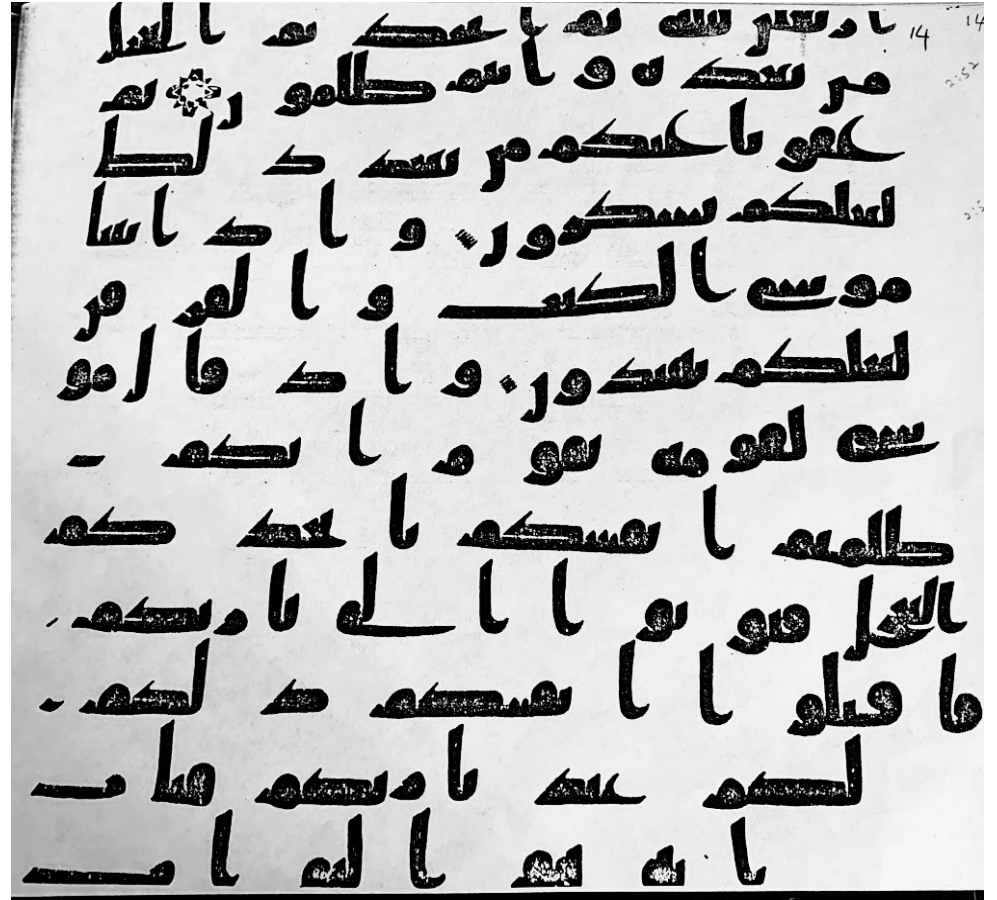 14
14
2:52
اربعين ليلة ثم اتخذتم العجل
من بعده وانتم ظلمون ثم
عفونا عنكم من بعد ذلك
لعلكم تشكرون واذ اتينا
موسى الكتب والفرقن
لعلكم تهتدون واذ قال مو
سى لقومه يقوم انكم
ظلمتم انفسكم باتخذكم
العجل فتوبوا الى بارئكم
فاقتلوا انفسكم ذلكم
لكم عند بارئكم فتاب
انه هو التواب